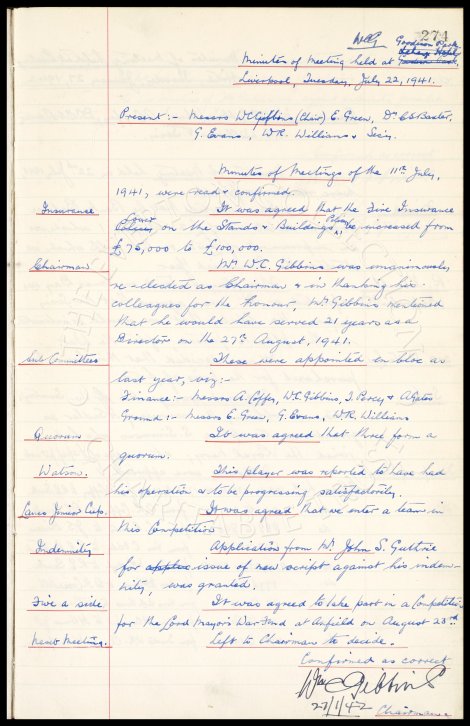 274
WCG Goodison Park
Minutes of Meeting held at
Liverpool, Tuesday, July 22, 1941.
Present:- Messrs WCGibbins (Chair) E. Green, Dr. C.S. Baxter,
G. Evans, W.R. Williams & Secy.
Minutes of Meetings of the 11th July,
1941, were read & confirmed.
Insurance It was agreed that the Fire Insurance
Cover on the Stands & Buildings be increased from
£75,000 to £100,000.
Chairman Mr. W.C. Gibbins was unanimously
re-elected as Chairman & in thanking his
colleagues for the honour, Mr. Gibbins mentioned
that he would have served 21 years as a
Director on the 27th August, 1941.
Sub Committees These were appointed en bloc as
last year, viz:-
Finance:- Messrs A. Coffey, WC Gibbins, J. Percy, & A Gates
Ground:- Messrs E. Green, G. Evans, W.R. Williams
Quorum It was agreed that three form a
quorum.
Watson. This player was reported to have had
his operation & to be progressing satisfactorily.
Lancs Junior Cup. It was agreed that we enter a team in
this Competition
Indemnity Application from Mr. John S. Guthrie
for issue of new script against his indem-
nity, was granted.
Five a side It was agreed to take part in a Competition
for the Lord Mayor's War Fund at Anfield on August 23rd
Next Meeting. Left to Chairman to decide.
Confirmed as correct
Wm C Gibbins
1/42
Chairman